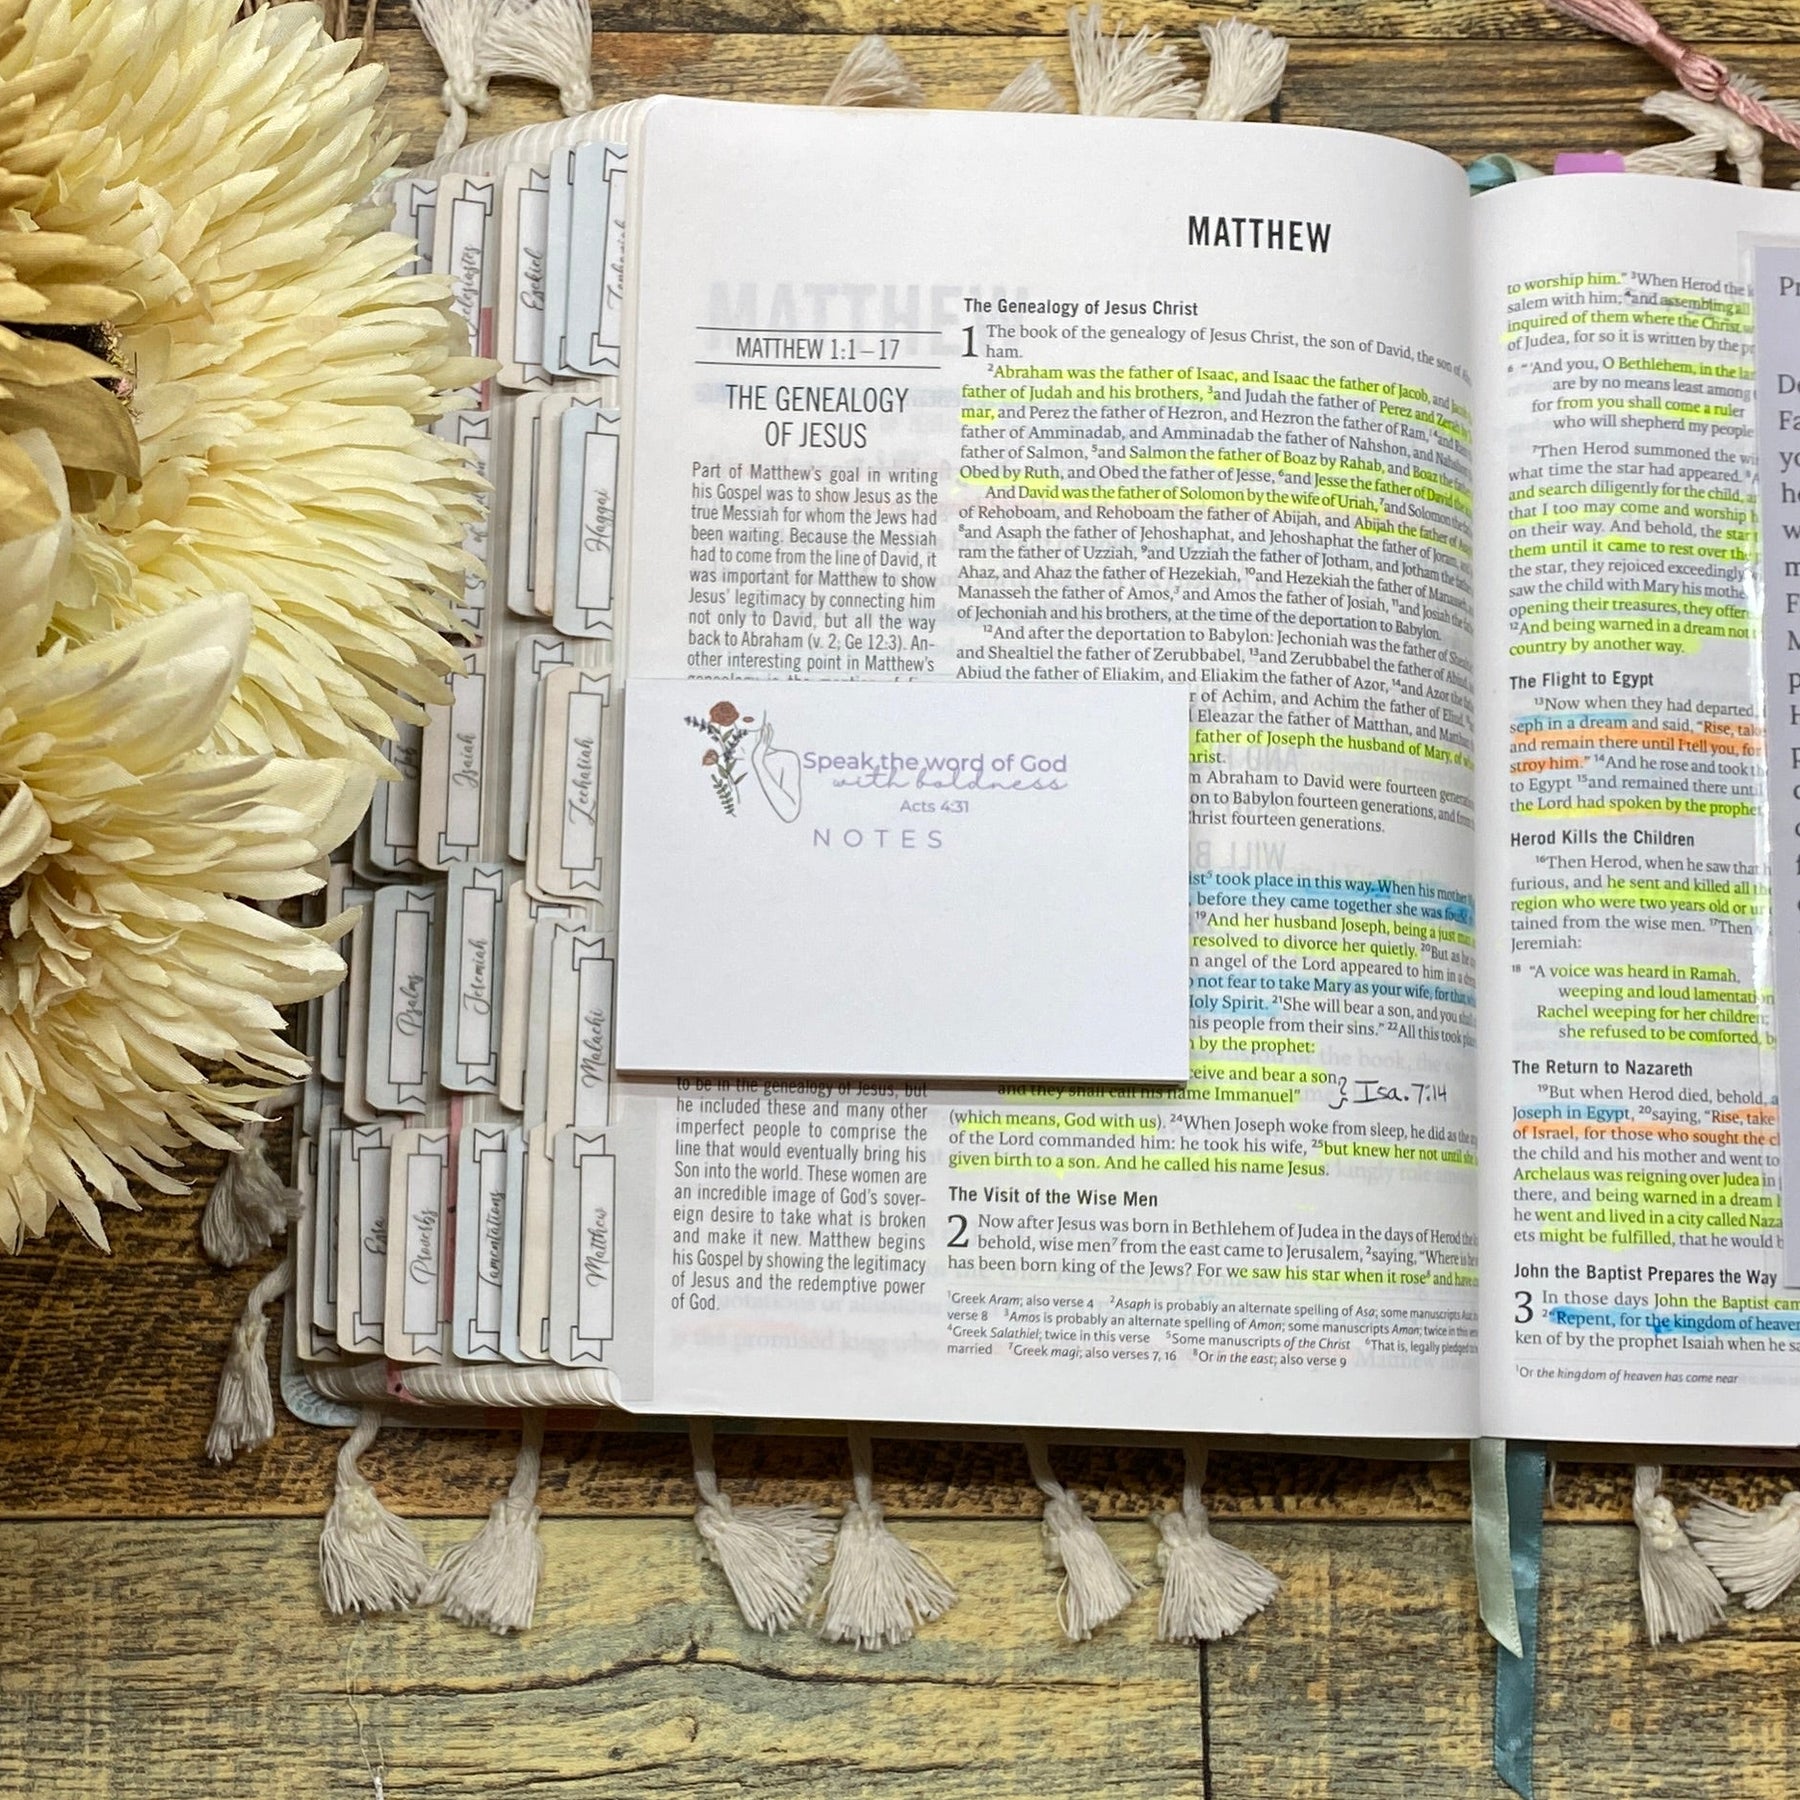 MATTHEW
MATTHEW 1:1–17
THE GENEALOGY
OF JESUS
Part of Matthew's goal in writing
his Gospel was to show Jesus as the
true Messiah for whom the Jews had
been waiting. Because the Messiah
had to come from the line of David, it
was important for Matthew to show
Jesus' legitimacy by connecting him
not only to David, but all the way
back to Abraham (v. 2; Ge 12:3). An-
other interesting point in Matthew's
to be in the genealogy of Jesus, but
he included these and many other
imperfect people to comprise the
line that would eventually bring his
Son into the world. These women are
an incredible image of God's sover-
eign desire to take what is broken
and make it new. Matthew begins
his Gospel by showing the legitimacy
of Jesus and the redemptive power
of God.
The Genealogy of Jesus Christ
1 The book of the genealogy of Jesus Christ, the son of David, the son of
ham.
2Abraham was the father of Isaac, and Isaac the father of Jacob, and
father of Judah and his brothers, 3and Judah the father of Perez and Zerah by
mar, and Perez the father of Hezron, and Hezron the father of Ram, 4and
father of Amminadab, and Amminadab the father of Nahshon, and
father of Salmon, 5and Salmon the father of Boaz by Rahab, and Boaz the
Obed by Ruth, and Obed the father of Jesse, 6and Jesse the father of David
And David was the father of Solomon by the wife of Uriah, 7and Solomon
of Rehoboam, and Rehoboam the father of Abijah, and Abijah the father of
8and Asaph the father of Jehoshaphat, and Jehoshaphat the father of Joram,
ram the father of Uzziah, 9and Uzziah the father of Jotham, and Jotham the
Ahaz, and Ahaz the father of Hezekiah, 10and Hezekiah the father of
Manasseh the father of Amos,3 and Amos the father of Josiah, 11and Josiah
of Jechoniah and his brothers, at the time of the deportation to Babylon.
12And after the deportation to Babylon: Jechoniah was the father of
and Shealtiel the father of Zerubbabel, 13and Zerubbabel the father of
Abiud the father of Eliakim, and Eliakim the father of Azor, 14and Azor the
r of Achim, and Achim the father of
Eleazar the father of Matthan, and
father of Joseph the husband of Mary, of
hrist.
m Abraham to David were fourteen
on to Babylon fourteen generations, and
hrist fourteen generations.
ist5 took place in this way. When his mother
, before they came together she was
19And her husband Joseph, being a just
resolved to divorce her quietly. 20But as
n angel of the Lord appeared to him in a
not fear to take Mary as your wife, for
Holy Spirit. 21She will bear a son, and you
his people from their sins." 22All this took
by the prophet:
ceive and bear a son,
and they shall call his name Immanuel"
Isa. 7:14
(which means, God with us). 24When Joseph woke from sleep, he did as
of the Lord commanded him: he took his wife, 25but knew her not until
given birth to a son. And he called his name Jesus.
The Visit of the Wise Men
2 Now after Jesus was born in Bethlehem of Judea in the days of Herod
behold, wise men7 from the east came to Jerusalem, 2saying, "Where is
has been born king of the Jews? For we saw his star when it rose8 and have
1Greek Aram; also verse 4 2Asaph is probably an alternate spelling of Asa; some manuscripts
verse 8 3Amos is probably an alternate spelling of Amon; some manuscripts Amon; twice in
4Greek Salathiel; twice in this verse 5Some manuscripts of the Christ 6That is, legally pledged
married 7Greek magi; also verses 7, 16 8Or in the east; also verse 9
Speak the word of God
with boldness
Acts 4:31
NOTES
to worship him." 3When Herod the
salem with him; 4and assembling all
inquired of them where the Christ
of Judea, for so it is written by the
6 "'And you, O Bethlehem, in the
are by no means least among
for from you shall come a ruler
who will shepherd my people
7Then Herod summoned the
what time the star had appeared.
and search diligently for the child,
that I too may come and worship
on their way. And behold, the star
them until it came to rest over the
the star, they rejoiced exceedingly
saw the child with Mary his
opening their treasures, they
12And being warned in a dream not
country by another way.
The Flight to Egypt
13Now when they had departed,
seph in a dream and said, "Rise,
and remain there until I tell you, for
stroy him." 14And he rose and took
to Egypt 15and remained there
the Lord had spoken by the
Herod Kills the Children
16Then Herod, when he saw that
furious, and he sent and killed all
region who were two years old or
tained from the wise men. 17Then
Jeremiah:
18 "A voice was heard in Ramah,
weeping and loud lamentation
Rachel weeping for her children;
she refused to be comforted,
The Return to Nazareth
19But when Herod died, behold,
Joseph in Egypt, 20saying, "Rise, take
of Israel, for those who sought the
the child and his mother and went to
Archelaus was reigning over Judea in
there, and being warned in a dream
he went and lived in a city called
ets might be fulfilled, that he would
John the Baptist Prepares the Way
3 In those days John the Baptist
2"Repent, for the kingdom of heaven
ken of by the prophet Isaiah when he
1Or the kingdom of heaven has come near
Ecclesiastes
Ezekiel
Haggai
Job
Isaiah
Zechariah
Psalms
Jeremiah
Malachi
Ezra
Proverbs
Lamentations
Matthew